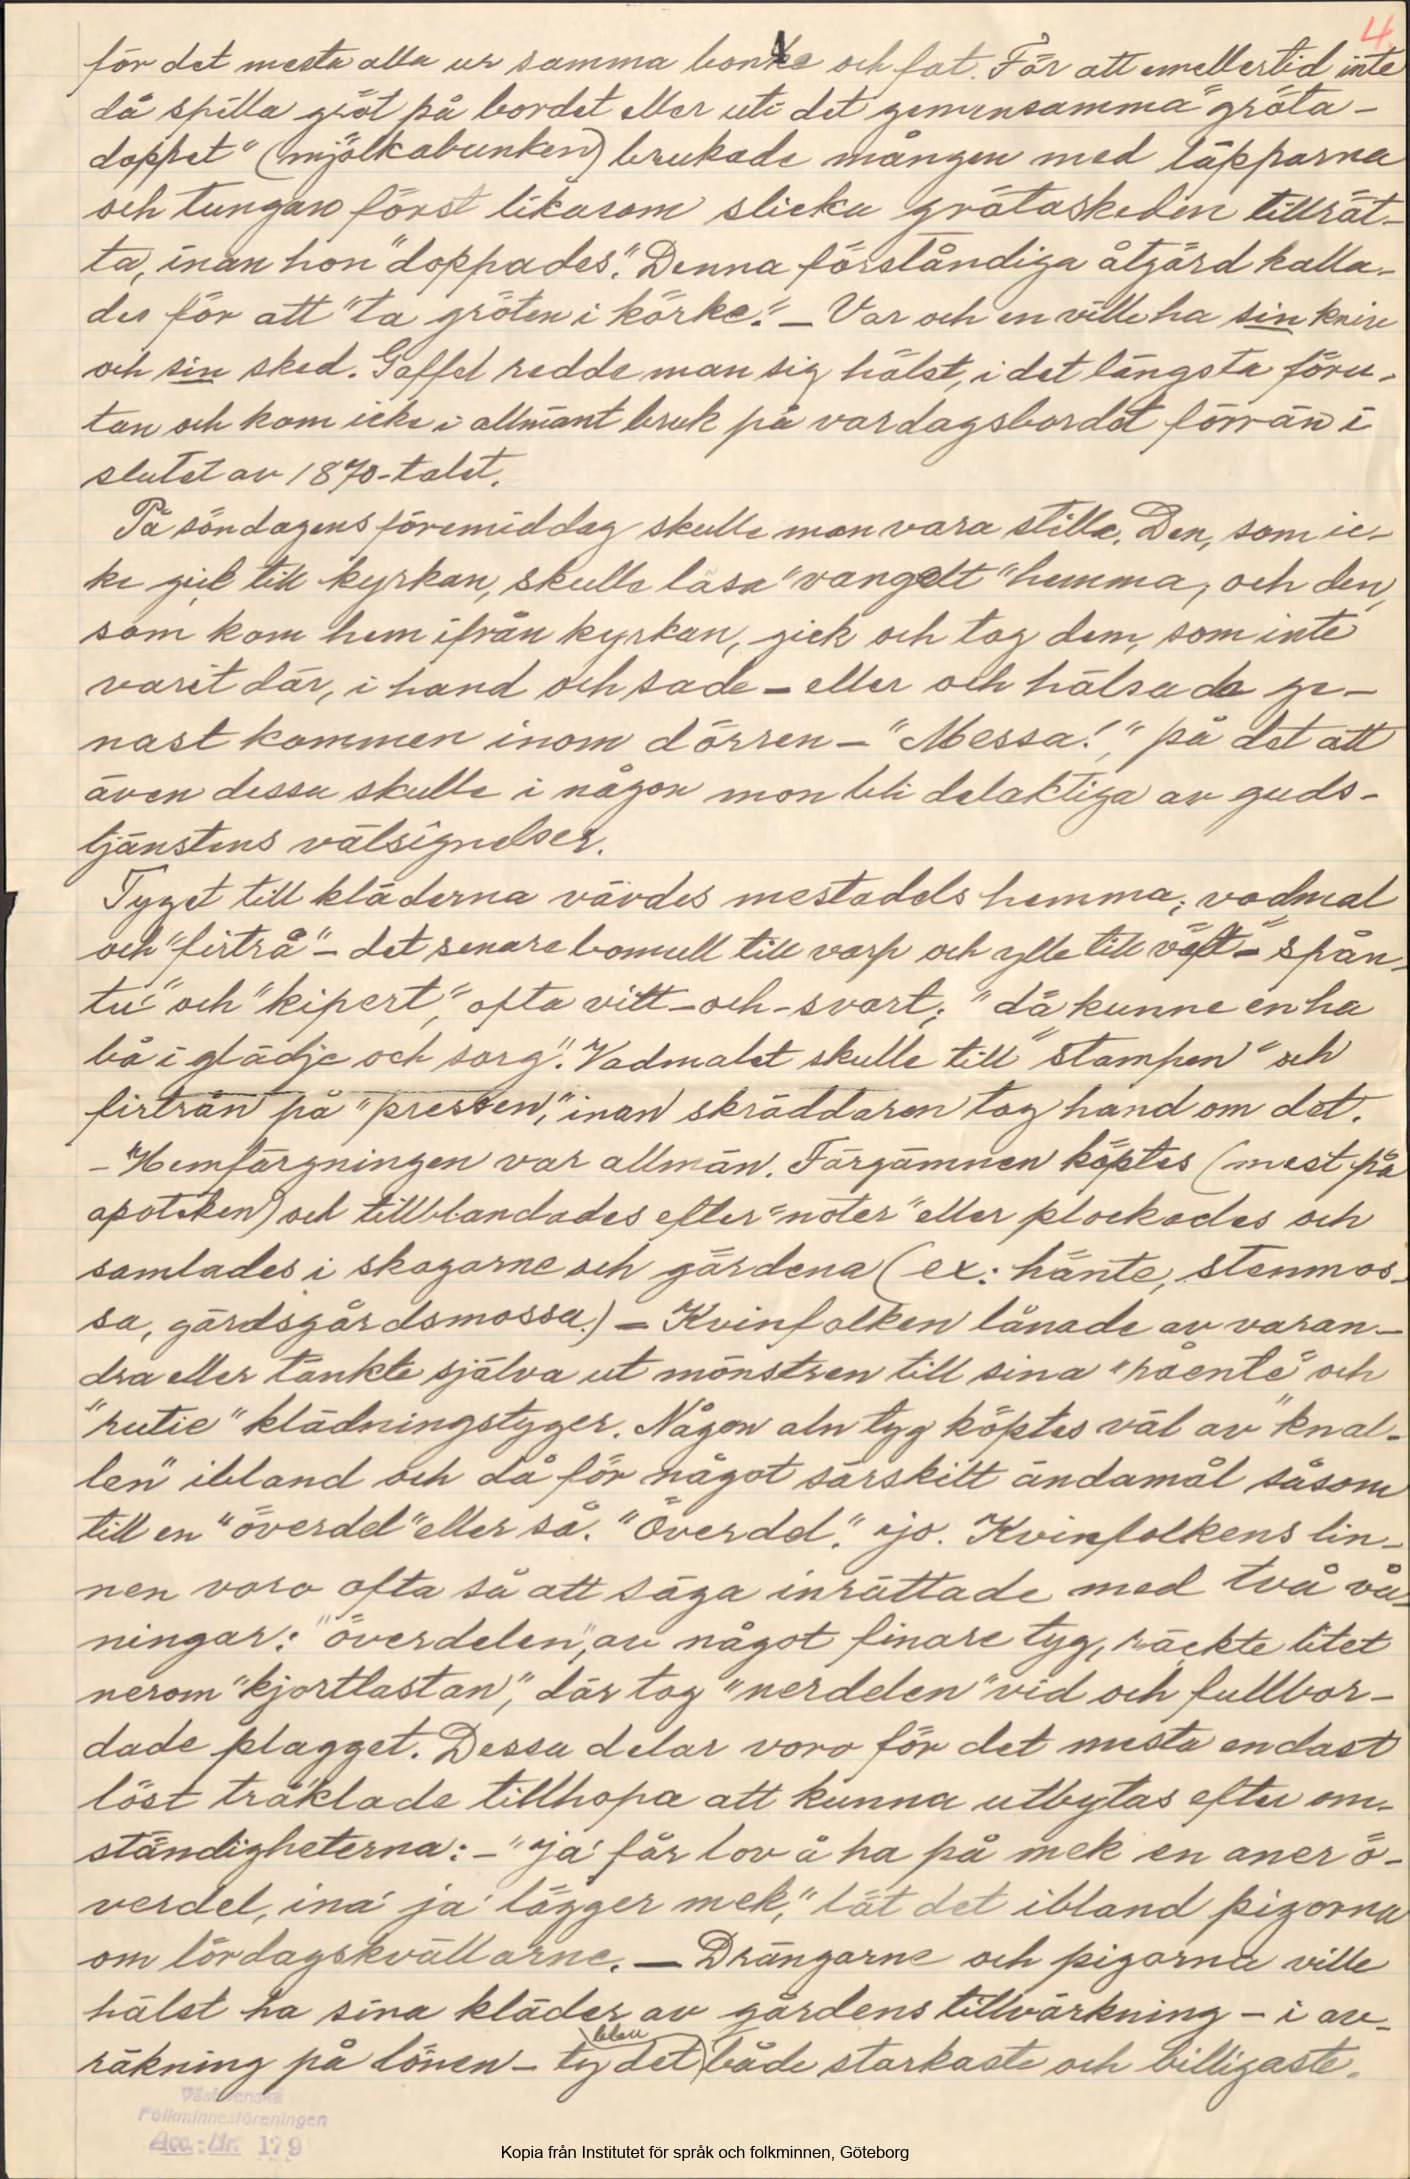 4.
för det mesta alla ur samma bonke och fat. För att emellertid inte
då spilla gröt på bordet eller uti det gemensamma "gröta-
doppet" (mjölkabunken) brukade mången med läpparna
och tungan först likasom slicka grötaskeden tillrät-
ta, inan hon "doppades". Denna förståndiga åtgärd kalla-
des för att "ta gröten i körke." – Var och en ville ha sin knive
och sin sked. Gaffel redde man sig hälst, i det längsta föru-
tan och kom icke i allmänt bruk på vardagsbordet förrän i
slutet av 1870-talet.
På söndagens föremiddag skulle man vara stilla. Den, som ic-
ke gick till kyrkan, skulle läsa "vangelt" hemma, och den,
som kom hem ifrån kyrkan, gick och tog dem, som inte
varit där, i hand och sade – eller och hälsade ge-
nast kommen inom dörren – "Messa!", på det att
även dessa skulle i någon mon bli delaktiga av guds-
tjänstens välsignelser.
Tyget till kläderna vävdes mestadels hemma; vadmal
och "firtrå" – det senare bomull till varp och ylle till väft – "spån-
tu" och "kipert", ofta vitt-och-svart; "dä kunne en ha
bå i glädje och sorg". Vadmalet skulle till "stampen" och
firtrån på "pressen", inan skräddaren tog hand om det.
– Hemfärgningen var allmän. Färgämnen köptes (mest på
apoteken) och tillblandades efter "noter" eller plockades och
samlades i skogarne och gärdena (ex: hänte, stenmos-
sa, gärdsgårdsmossa.) – Kvinfolken lånade av varan-
dra eller tänkte själva ut mönstren till sina "råente" och
"rutie" klädningstyger. Någon aln tyg köptes väl av "knal-
len" ibland och då för något särskilt ändamål såsom
till en "överdel" eller så. "Överdel", ijo. Kvinfolkens lin-
nen voro ofta så att säga inrättade med två vå-
ningar: "överdelen", av något finare tyg, räckte litet
nerom "kjortlastan", där tog "nerdelen" vid och fullbor-
dade plagget. Dessa delar voro för det mesta endast
löst träklade tillhopa att kunna utbytas efter om-
ständigheterna: – "ja' får lov å ha på mek en aner ö-
verdel, ina' ja' lägger mek", lät det ibland pigorna
om lördagskvällarne. – Drängarne och pigorna ville
hälst ha sina kläder av gårdens tillvärkning – i av-
räkning på lönen – ty det blev både starkaste och billigaste.
Västsvenska
Folkminnesföreningen
Acc.-Nr. 179
Kopia från Institutet för språk och folkminnen, Göteborg